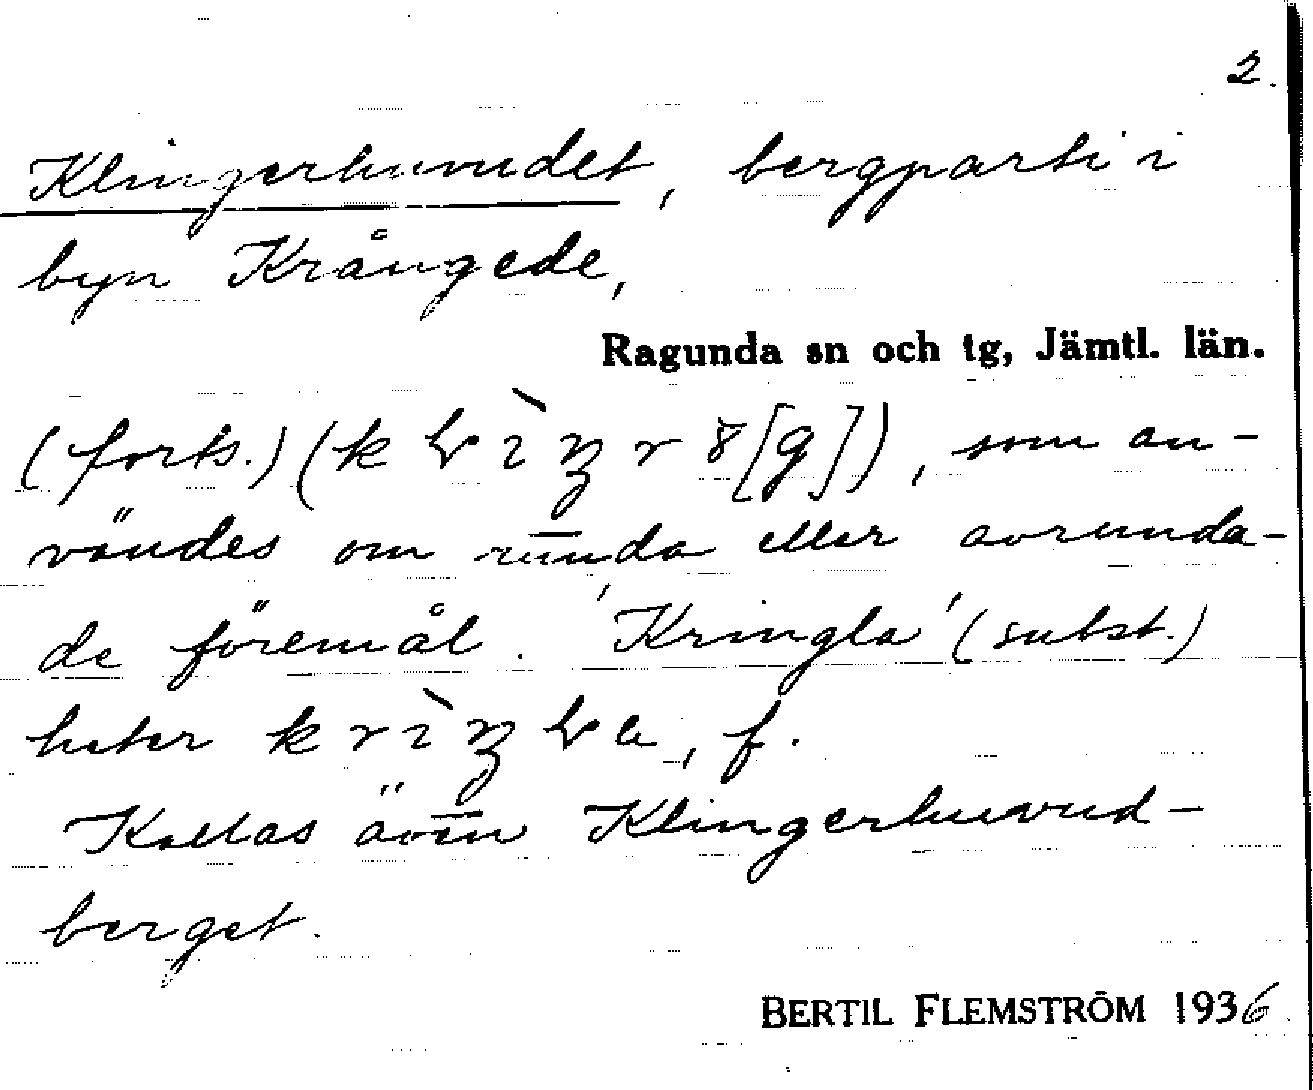 2.
Klingerhuvudet, bergparti i
byn Krångede,
Ragunda sn och tg, Jämtl. län.
(forts.) (k ɭ ì ŋ r 8 [g]), som an-
vändes om runda eller avrunda-
de föremål. 'Kringla' (subst.)
heter k r ì ŋ ɭ a, f.
Kallas även Klingerhuvud-
berget.
BERTIL FLEMSTRÖM 1936